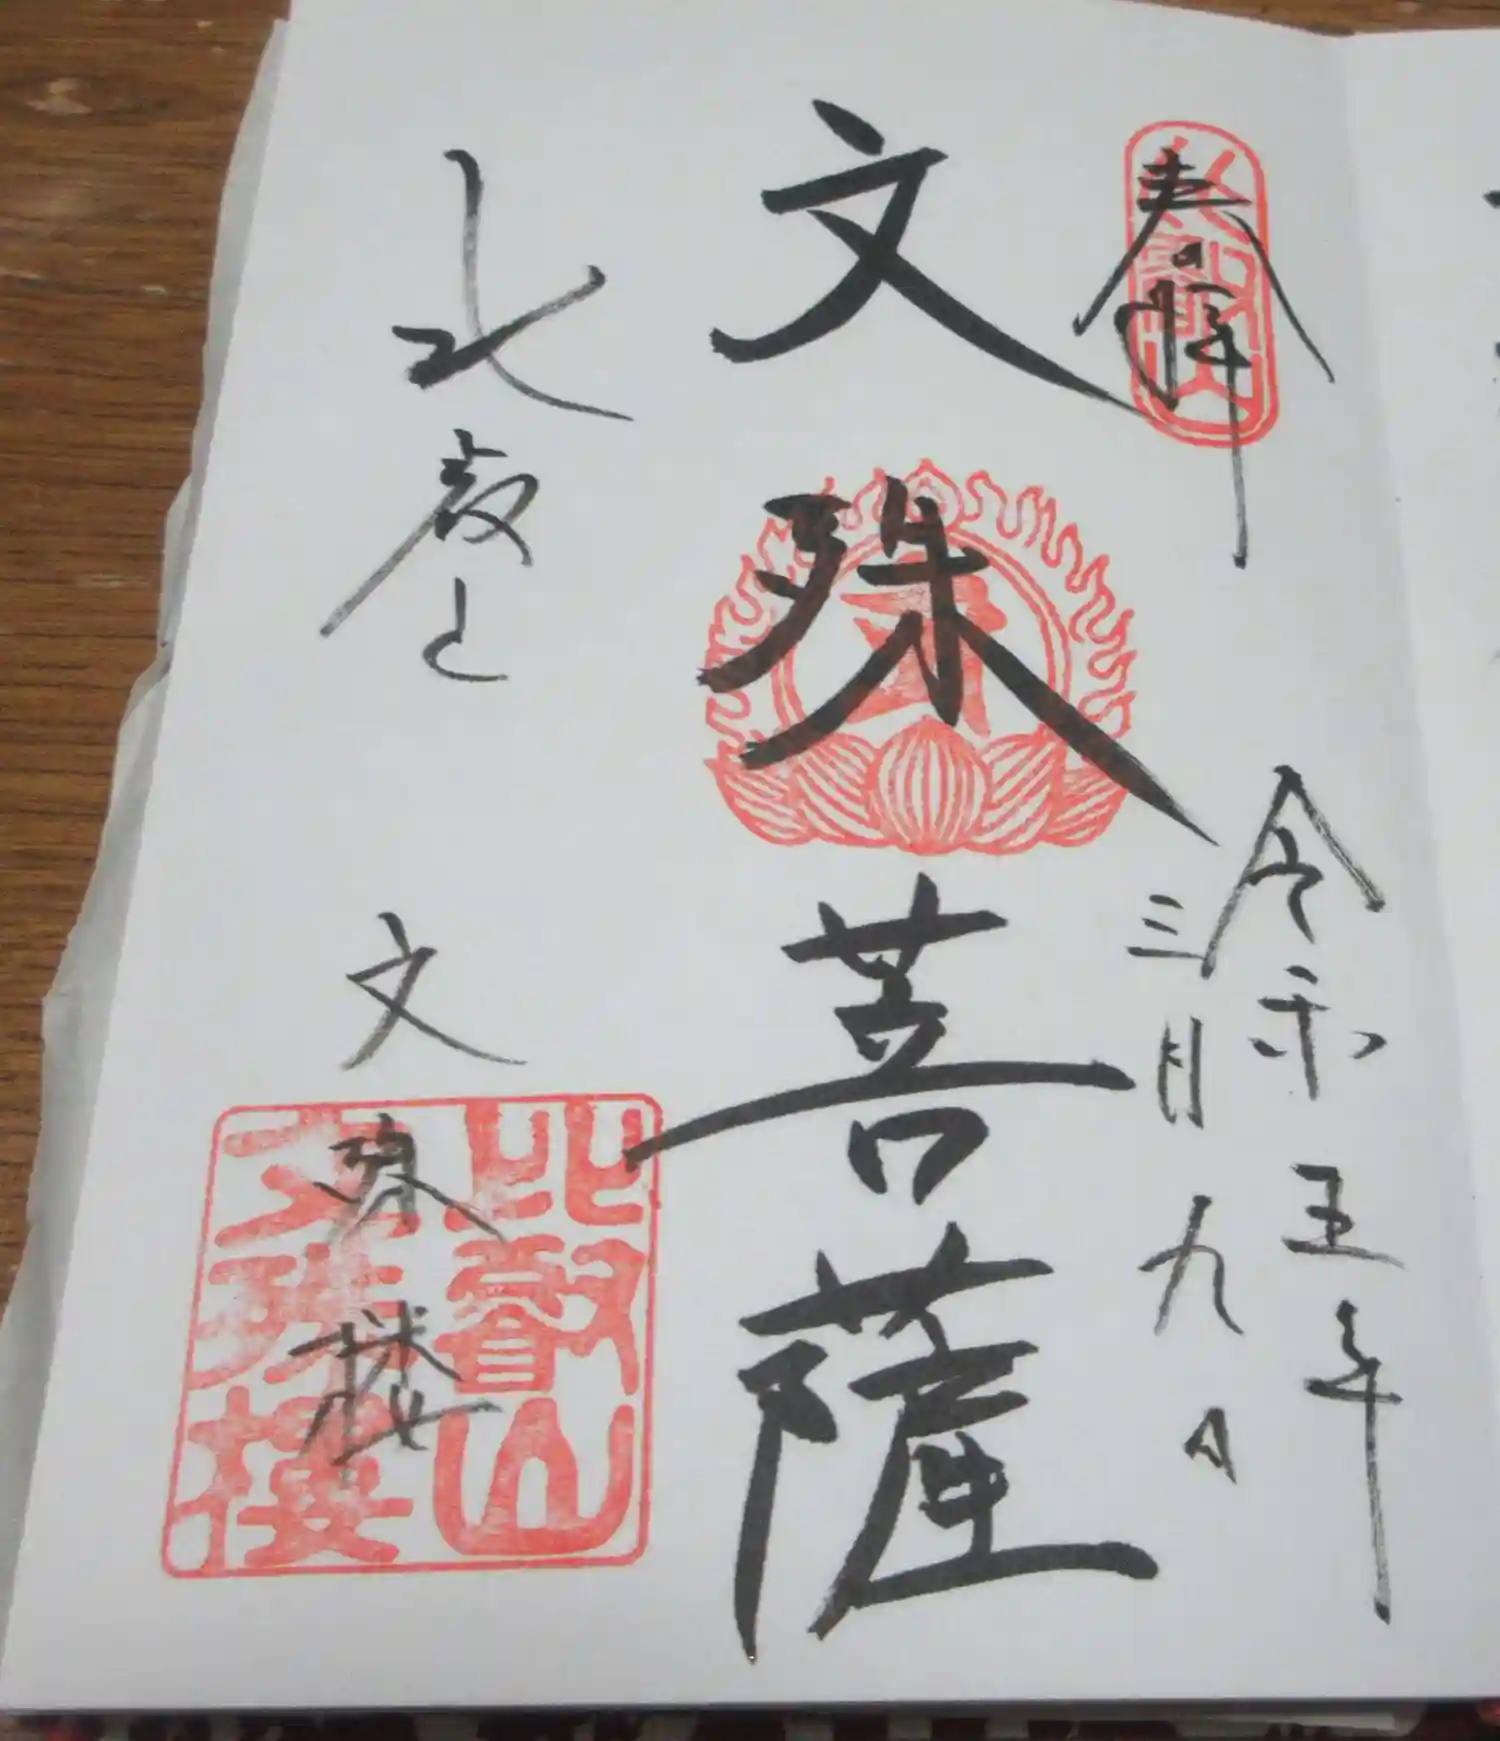 奉拝
比叡山
令和五年
三月九日
文殊菩薩
比叡山 文殊楼
比叡山
文殊樓